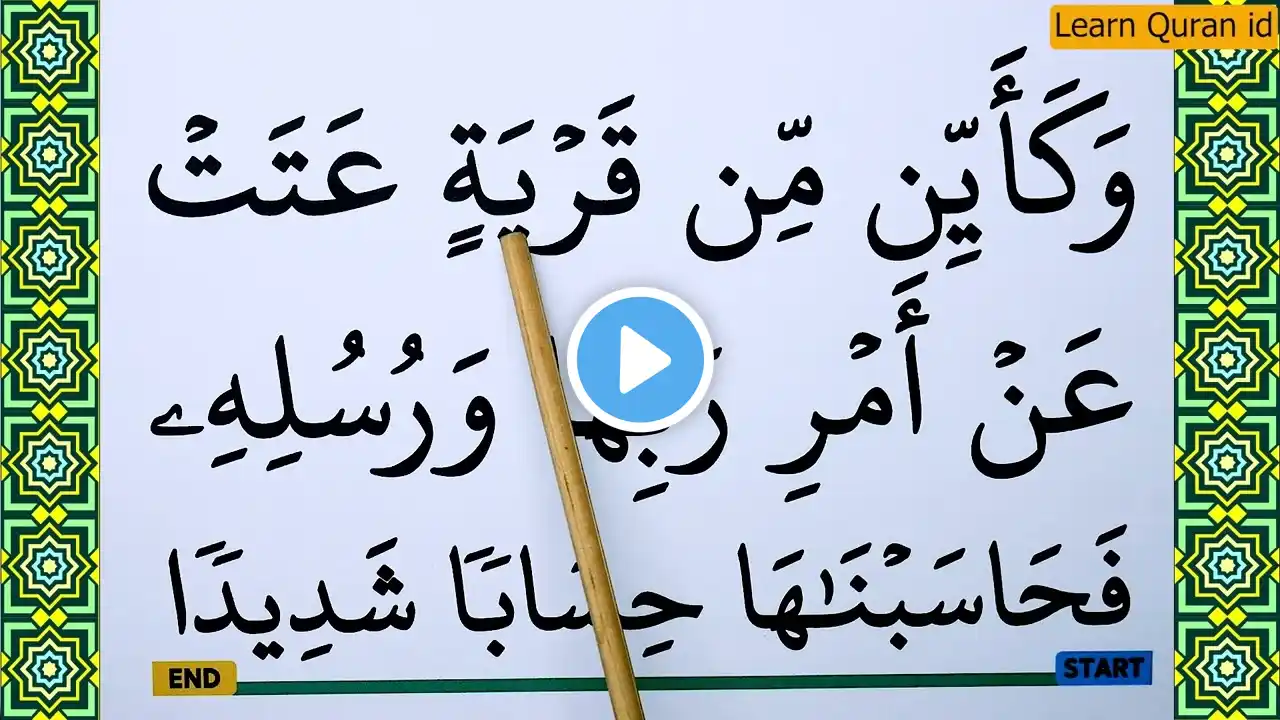 Learn Quran id
وَكَأَيِّن مِّن قَرۡيَةٍ عَتَتۡ
عَنۡ أَمۡرِ رَبِّهَا وَرُسُلِهِۦ
فَحَاسَبۡنَٰهَا حِسَابٗا شَدِيدٗا
END START